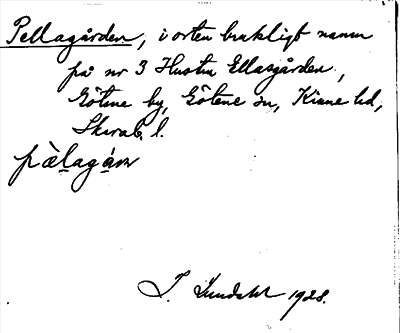 Pellagården, i orten brukligt namn
på nr 3 Hustru Ellasgården,
Götene by, Götene sn, Kinne hd,
Skarab. l.
pälagáṛn
I. Lundahl 1928.